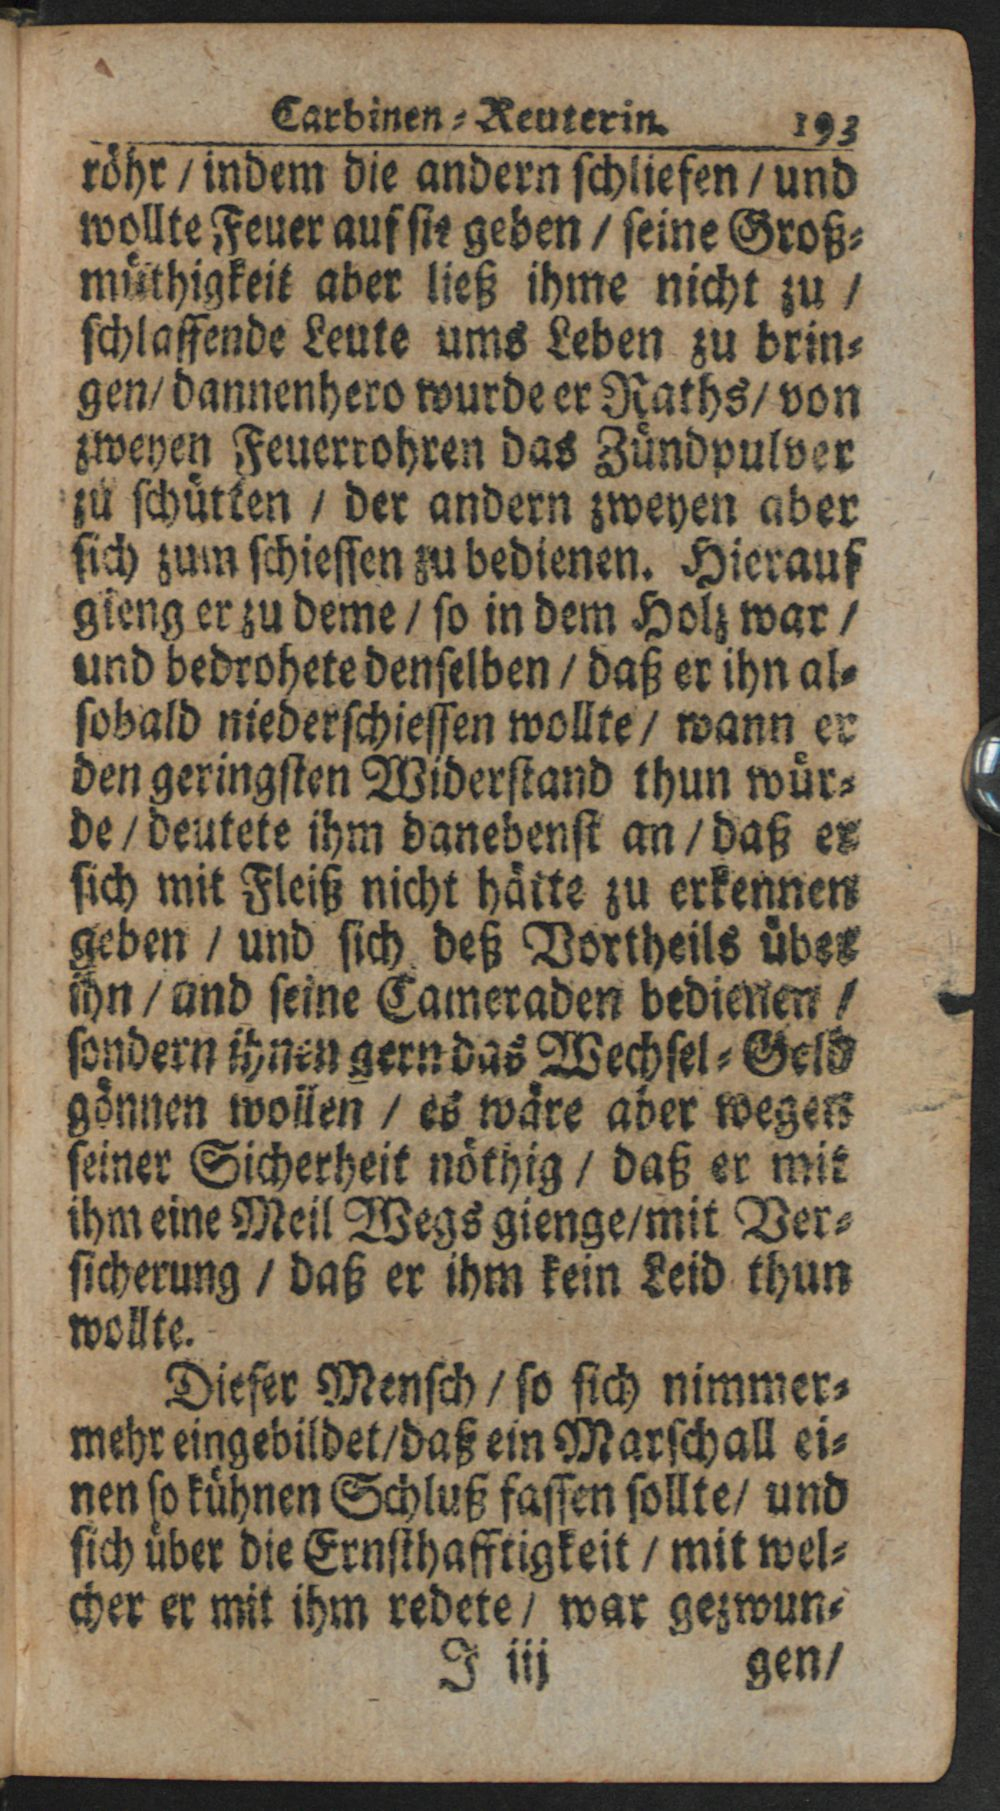 Carbinen-Reuterin. 193
röhr / indem die andern schliefen / und
wollte Feuer auf sie geben / seine Groß-
müthigkeit aber ließ ihme nicht zu /
schlaffende Leute ums Leben zu brin-
gen / dannenhero wurde er Raths / von
zweyen Feuerrohren das Zündpulver
zu schütten / der andern zweyen aber
sich zum schiessen zu bedienen. Hierauf
gieng er zu deme / so in dem Holz war /
und bedrohete denselben / daß er ihn al-
sobald niederschiessen wollte / wann er
den geringsten Widerstand thun wür-
de / deutete ihm danebenst an / daß er
sich mit Fleiß nicht hätte zu erkennen
geben / und sich deß Vortheils über
ihn / und seine Cameraden bedienen /
sondern ihnen gern das Wechsel-Geld
gönnen wollen / es wäre aber wegen
seiner Sicherheit nöthig / daß er mit
ihm eine Meil Wegs gienge / mit Ver-
sicherung / daß er ihm kein Leid thun
wollte.
Dieser Mensch / so sich nimmer-
mehr eingebildet / daß ein Marschall ei-
nen so kühnen Schluß fassen sollte / und
sich über die Ernsthafftigkeit / mit wel-
cher er mit ihm redete / war gezwun-
J iij gen /